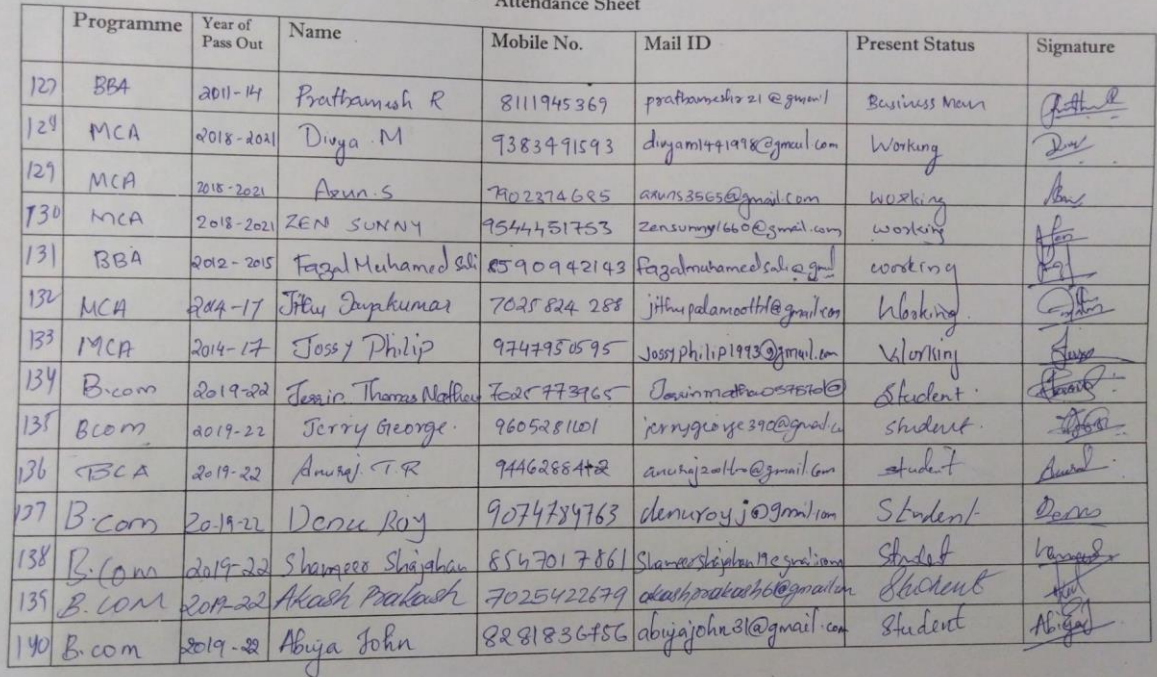 Attendance Sheet
Programme Year of Pass Out Name Mobile No. Mail ID Present Status Signature
127 BBA 2011-14 Prathamesh R 8111945369 prathameshr21@gmail Business Man
128 MCA 2018-2021 Divya M 9383491593 divyam1441998@gmail.com Working
129 MCA 2018-2021 Arun.S 7902374685 aruns3565@gmail.com working
130 MCA 2018-2021 ZEN SUNNY 9544451753 zensunny1660@gmail.com working
131 BBA 2012-2015 Fazal Muhamed Sali 8590942143 fazalmuhamedsali@gmail working
132 MCA 2014-17 Jithu Jayakumar 7025824288 Working
133 MCA 2014-17 Jossy Philip 9747950595 jossyphilip1993@gmail.com Working
134 B.com 2019-22 Thomas 7025773965 Student
135 Bcom 2019-22 Jerry George. 9605281101 student.
136 BCA 2019-22 Anuraj. T.R student
137 B.com 2019-22 Denu Roy 9074784763 denuroyj@gmail.com Student
138 B.Com 2019-22 Shameer Shajahan 8547017861
139 B.COM 2019-22 Akash Prakash 7025422679 Student
140 B.com 2019-22 Abija John 8281836756 abijajohn31@gmail.com Student